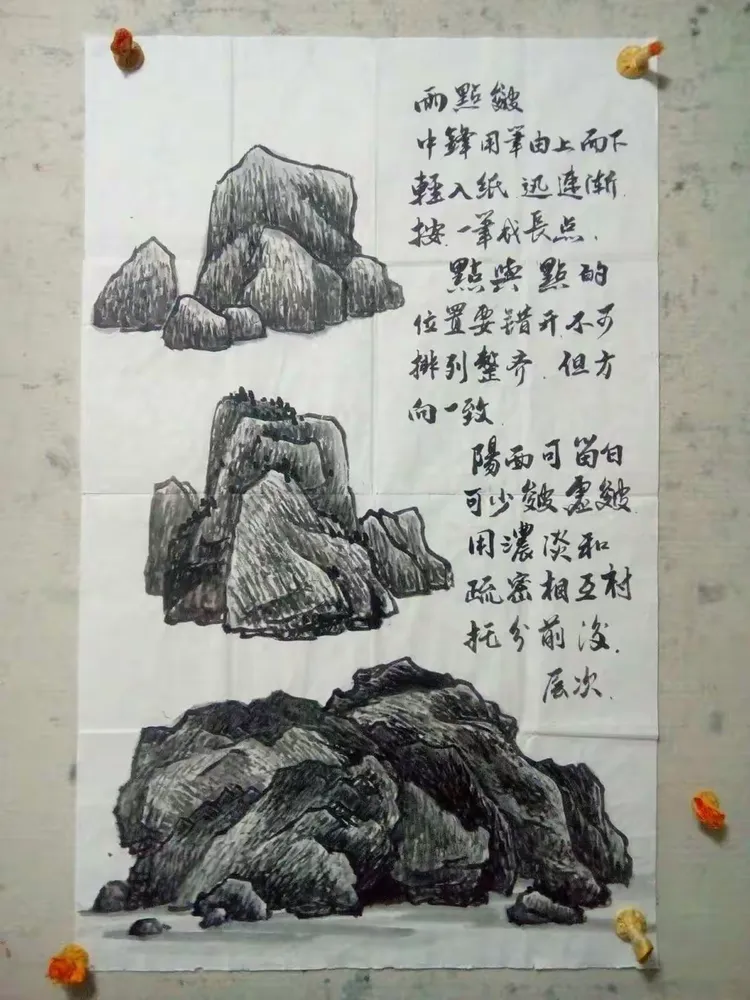 雨點皴
中鋒用筆由上而下
輕入纸迅速渐
按一筆成長点、
點與點的
位置要错开不可
排列整齐.但方
向一致.
陽面可留白
可少皴.虛皴.
用濃淡和
疏密相互衬
托分前後.
层次.